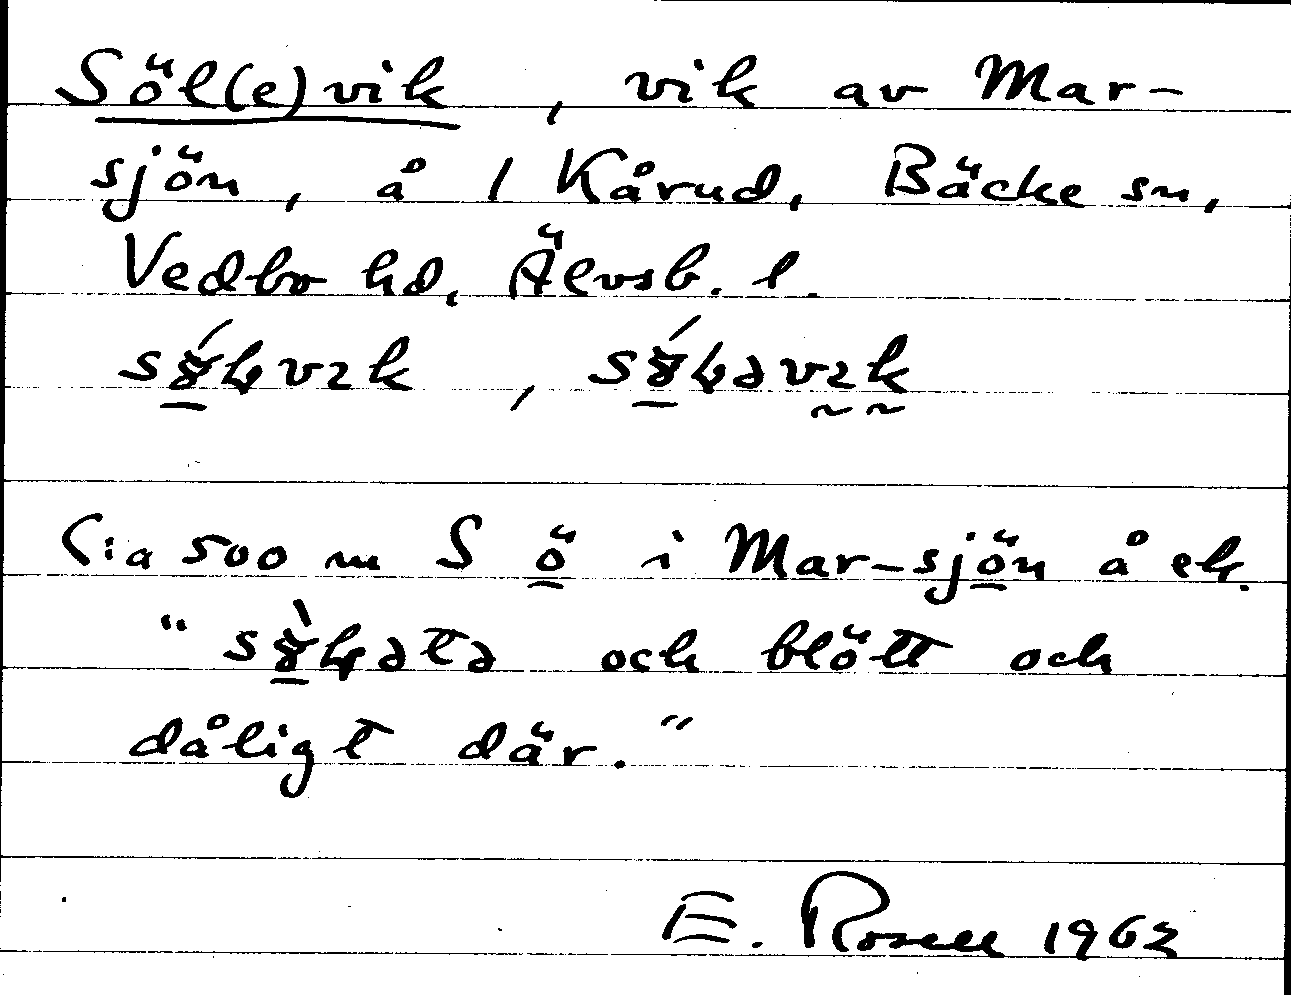 Söl(e)vik, vik av Mar-
sjön, å 1 Kårud, Bäcke sn,
Vedbo hd, Älvsb. l.
C:a 500 m S ö i Mar-sjön å ek.
och blött och
dåligt där."
E. Rosell 1962